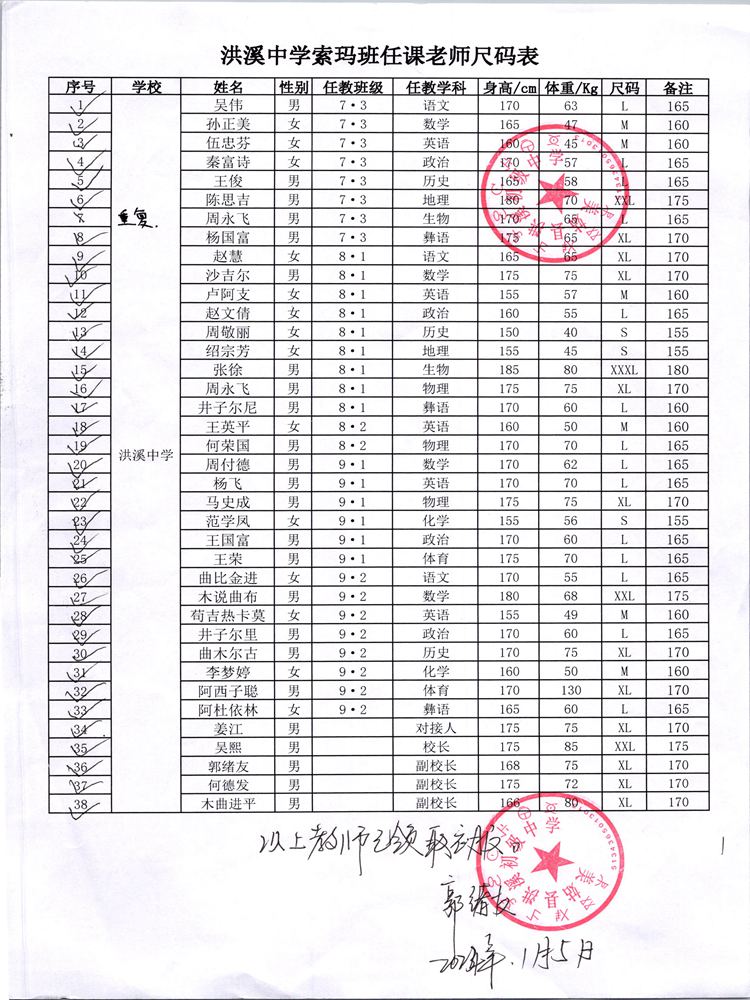 洪溪中学索玛班任课老师尺码表
序号 学校 姓名 性别 任教班级 任教学科 身高/cm 体重/Kg 尺码 备注
1 吴伟 男 7·3 语文 170 63 L 165
2 孙正美 女 7·3 数学 165 47 M 160
3 伍忠芬 女 7·3 英语 160 45 M 160
4 秦富诗 女 7·3 政治 170 57 L 165
5 王俊 男 7·3 历史 165 58 L 165
6 陈思吉 男 7·3 地理 180 70 XXL 175
7 重复. 周永飞 男 7·3 生物 170 65 L 165
8 杨国富 男 7·3 彝语 175 65 XL 170
9 赵慧 女 8·1 语文 165 65 XL 170
10 沙吉尔 男 8·1 数学 175 75 XL 170
11 卢阿支 女 8·1 英语 155 57 M 160
12 赵文倩 女 8·1 政治 160 55 L 165
13 周敬丽 女 8·1 历史 150 40 S 155
14 绍宗芳 女 8·1 地理 155 45 S 155
15 张徐 男 8·1 生物 185 80 XXXL 180
16 周永飞 男 8·1 物理 175 75 XL 170
17 井子尔尼 男 8·1 彝语 170 60 L 160
18 王英平 女 8·2 英语 160 50 M 160
19 何荣国 男 8·2 物理 170 70 L 165
洪溪中学
20 周付德 男 9·1 数学 170 62 L 165
21 杨飞 男 9·1 英语 170 70 L 165
22 马史成 男 9·1 物理 175 75 XL 170
23 范学凤 女 9·1 化学 155 56 S 155
24 王国富 男 9·1 政治 170 60 L 165
25 王荣 男 9·1 体育 175 70 L 165
26 曲比金进 女 9·2 语文 170 55 L 165
27 木说曲布 男 9·2 数学 180 68 XXL 175
28 荀吉热卡莫 女 9·2 英语 155 49 M 160
29 井子尔里 男 9·2 政治 170 60 L 165
30 曲木尔古 男 9·2 历史 170 75 XL 170
31 李梦婷 女 9·2 化学 160 50 M 160
32 阿西子聪 男 9·2 体育 170 130 XL 170
33 阿杜依林 女 9·2 彝语 165 60 L 165
34 姜江 男 对接人 175 75 XL 170
35 吴熙 男 校长 175 85 XXL 175
36 郭绪友 男 副校长 168 75 XL 170
37 何德发 男 副校长 175 72 XL 170
38 木曲进平 男 副校长 166 80 XL 170
以上教师已领取衣服。
郭绪友
1月5日